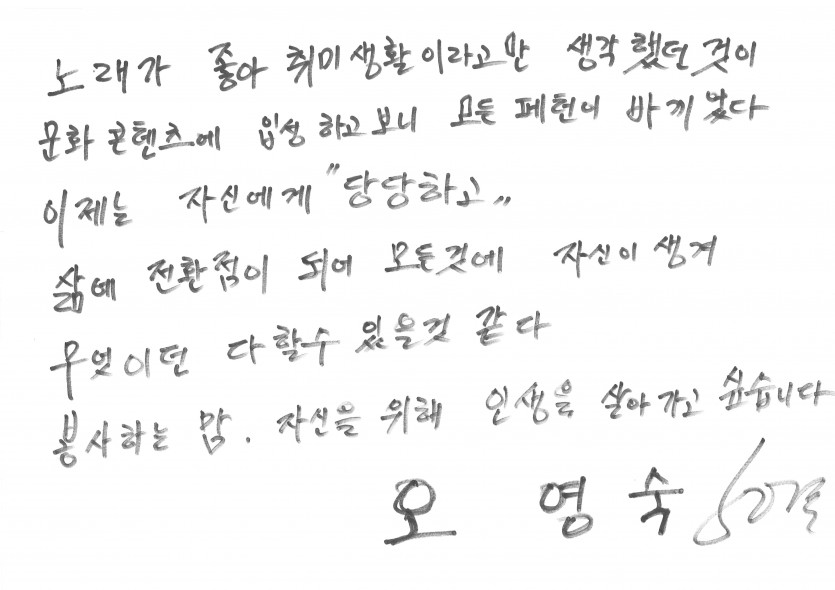 노래가 좋아 취미생활이라고만 생각했던 것이
문화 콘텐츠에 입성 하고 보니 모든 페헌이 바끼 었다
이제는 자신에게 "당당하고"
삶에 전환점이 되어 모든것에 자신이 생겨
무엇이던 다 할수 있을것 같다
봉사하는 맘. 자신을 위해 인생을 살아 가고 싶습니다
오 영 숙